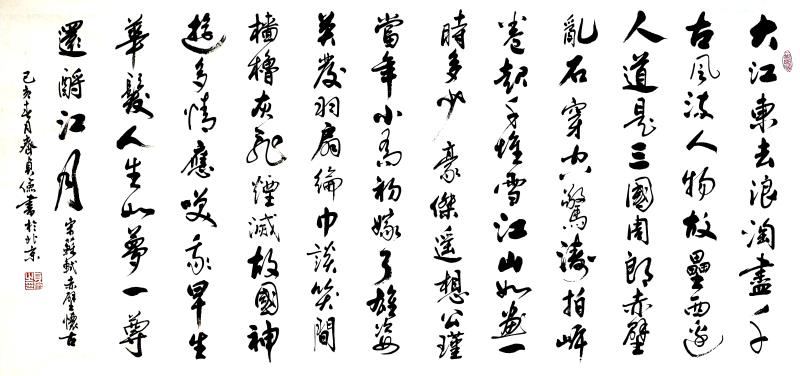 大江東去浪淘盡千
古風流人物故壘西邊
人道是三國周郎赤壁
亂石穿空驚濤拍岸
卷起千堆雪江山如畫一
時多少豪傑遥想公瑾
當年小喬初嫁了雄姿
英發羽扇綸巾談笑間
檣櫓灰飛煙滅故國神
遊多情應笑我早生
華髮人生如夢一尊
還酹江月
宋蘇軾赤壁懷古
己亥春月齊貞儉書於北京